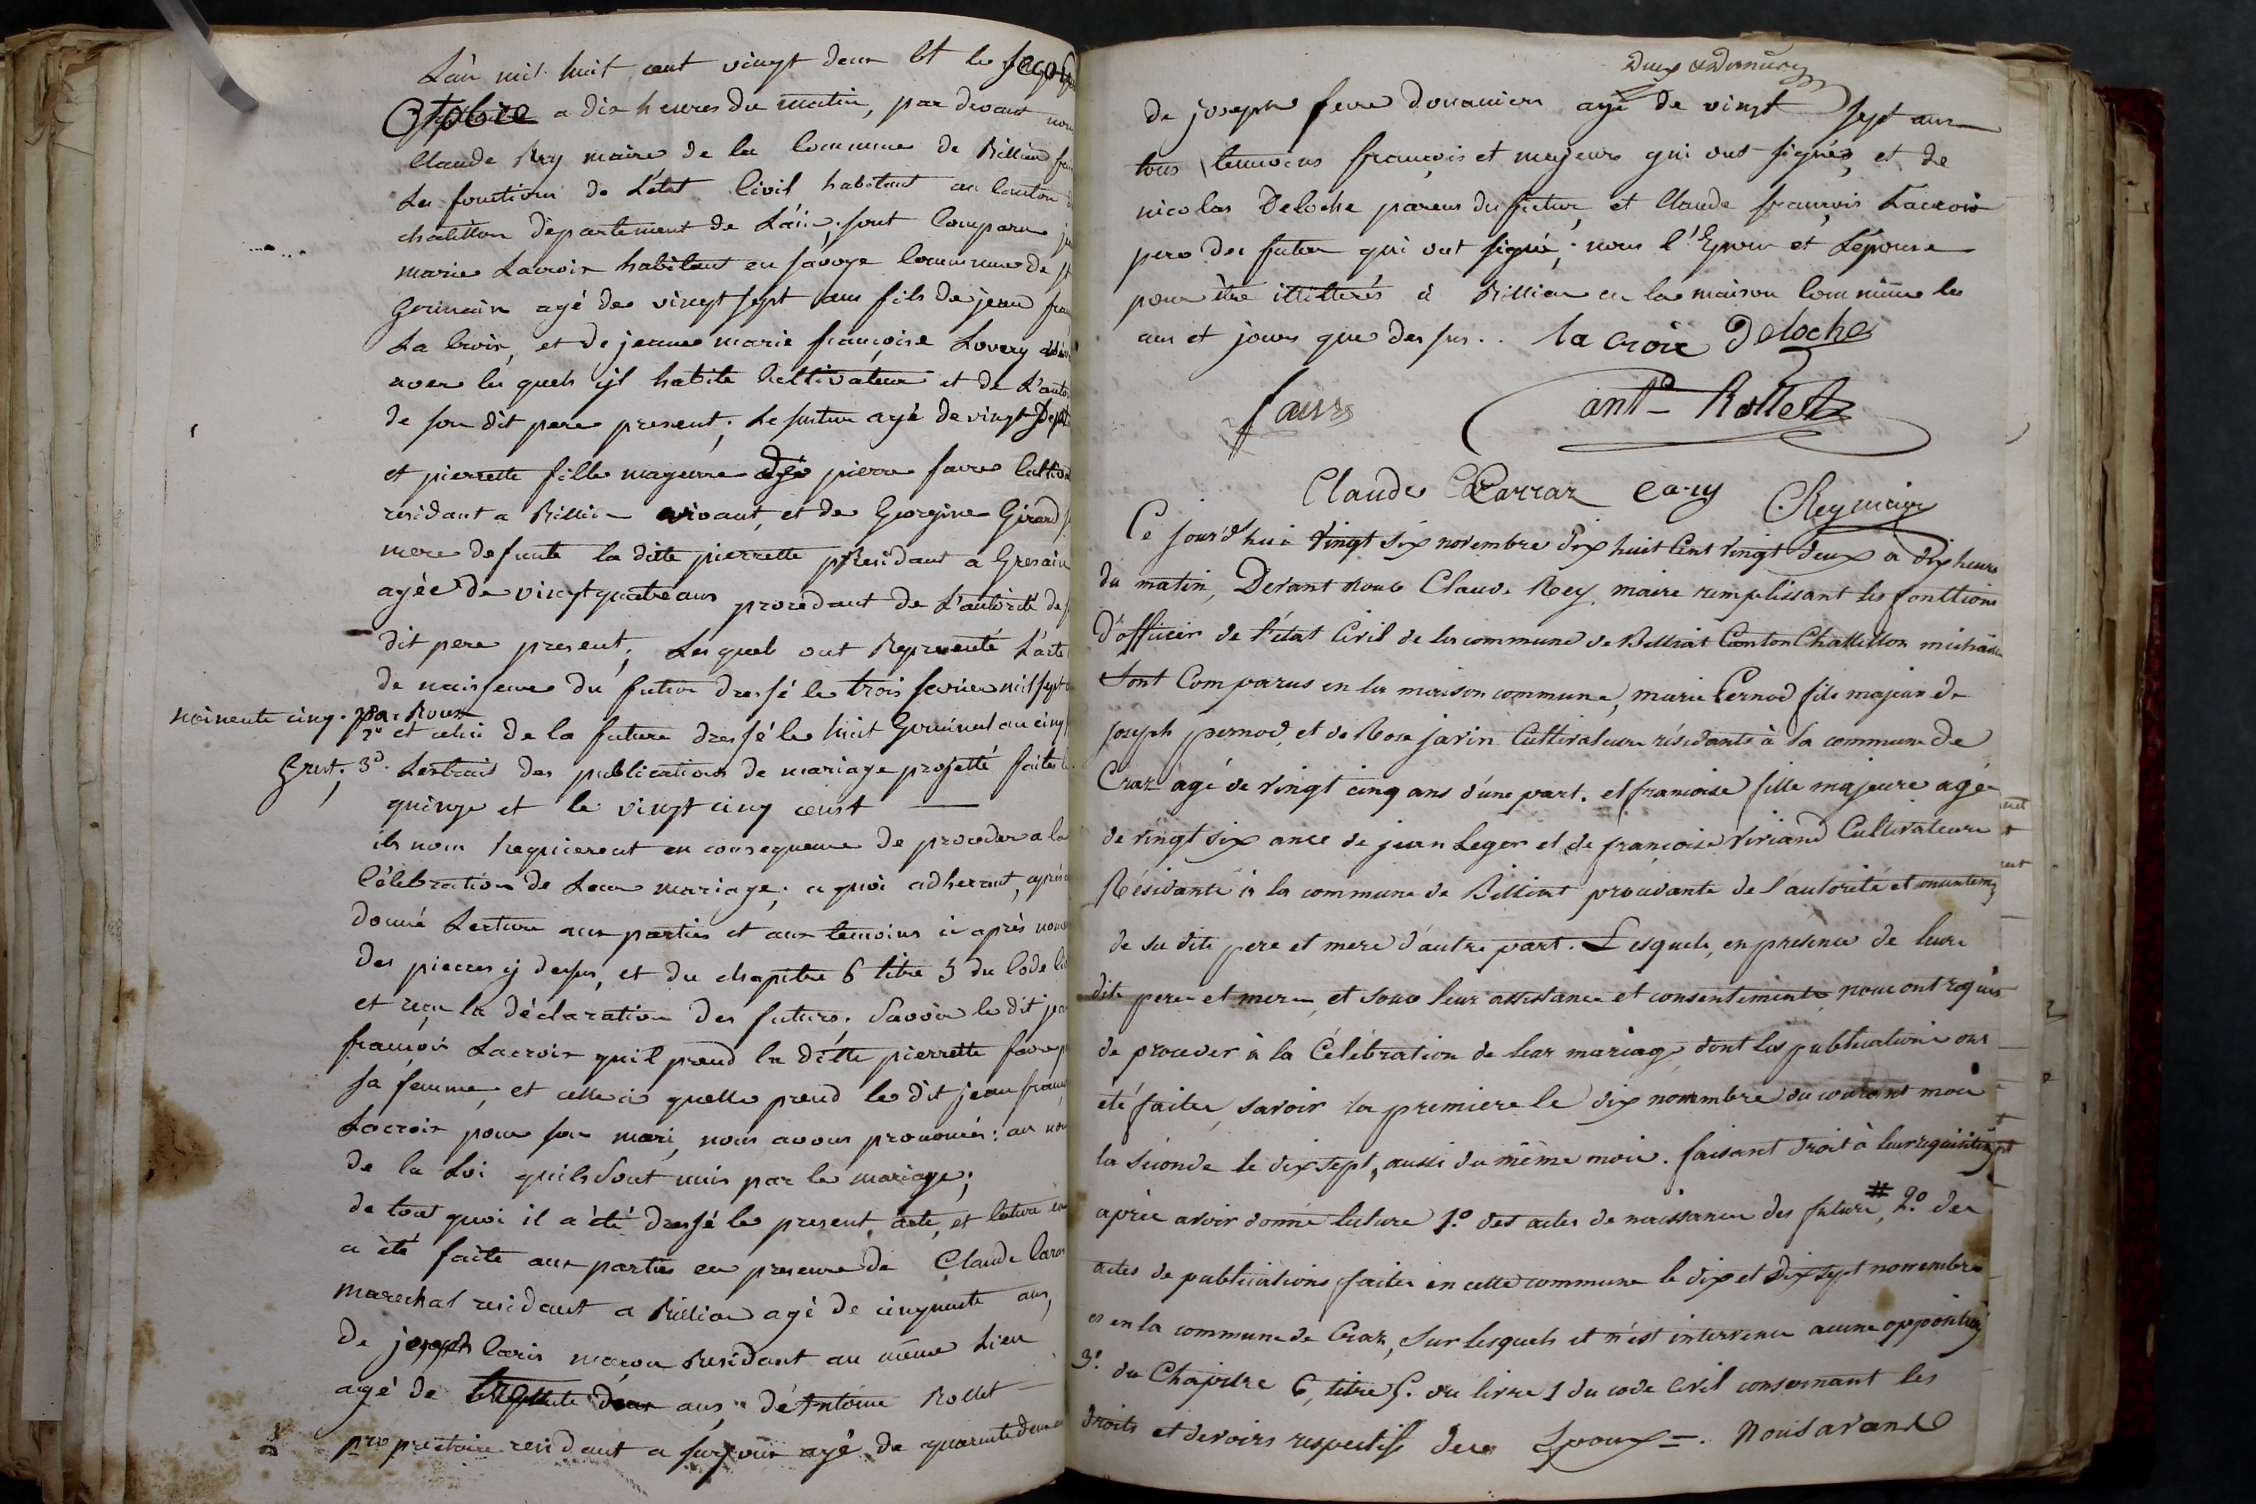 L'an mil huit cent vingt deux et le
Octobre a dix heures du matin, par devant nou
Claude Rey maire de la Commune de Billiad
Les fonctions de L'état Civil habitant au Canton
chatillon département de L'ain, sont Comparu
marie Lacroix habitant en Savoye Commune de St
Germain agé de vingt sept ans fils de jean fran
La Croix, et de jeanne marie françoise Lovery
avec les quels ÿl habite Cultivateur et de L'auto
de son dit pere present; Le futur agé de vingt sept
et pierrette fille mageure de pierre favre Cultiv
residant a Billia vivant, et de Gorgine Girard
mere defunte la ditte pierrette Residant a Gresain
agée de vingt quatre ans procedant de L'autorité de
dit pere present; Lesquels ont Representé L'acte
de naissence du futur dressé le trois fevrier mil sept
noinente cinq. par Roux
2º et celui de la future dressé le huit Germinal an cinq
3º. L'extrait des publications de mariage projetté faites
quinze et le vingt cinq
ils nous Requierent en consequence de proceder a la
Célebration de Leur mariage; a quoi adherant, après
donné Lecture aux parties et aux temoins ci après nom
des pieces cy dessus, et du chapitre 6 titre 5 du Code
et reçu la déclaration des futurs; Savoir le dit jea
françois Lacroix quil prend la ditte pierrette favre p
sa femme, et celle ci quelle prend le dit jean fran
Lacroix pour son mari, nous avons prononcés: au no
de la Loi quils sont unis par le mariage;
de tout quoi il a été dressé le present acte, et lecture en
a été faite aux parties en presence de Claude Carr
marechal residant a Billia agé de cinquante ans,
de joseph Carin maçon Residant au même Lieu
agé de ans, d'Antoine Rollet
proprietaire residant a surjoux agé de quarente deux
de joseph fevre douanier agé de vingt sept ans
tous temoins françois et majeurs qui ont signés, et de
nicolas Deloche parens du futur, et Claude françois Lacroix
pere des futur qui ont signé; nous l'Epoux et L'épouse
pour être illitterés à Billia en la maison Commune les
ans et jours que dessus.. la croix Deloche
favre antº Rollet
Claude Carraz cary CRey maire
Ce Jourd'hui vingt six novembre dix huit Cent vingt deux a dix heure
du matin, Devant nous Claude Rey, maire remplissant les fonctions
d'officier de l'état Civil de la commune de Billiat Canton Chatillon michaille
Sont Comparus en la maison commune, marie Pernod fils majeur de
Joseph pernod et de Rose Jarin Cultivateurs résidants à la commune de
Craz agé de vingt cinq ans d'une part. et francoise fille majeure agée
de vingt six ans de jean Leger et de françoise Viviand Cultivateurs
Résidants à la commune de Billiat procedante de l'autorité et
de su dits pere et mere d'autre part. Lesquels, en présence de leurs
dits peres et meres, et sous leur assistance et consentiments, nous ont requis
de proceder à la Célébration de leur mariage, dont les publications ont
été faites, savoir la premiere le dix novembre du courant mois
la séconde le dix sept, aussi du même mois. faisant droit à leur requisition
après avoir donné lecture 1.º des actes de naissance des futurs#, 2.º des
actes de publications faites en cette commune le dix et dix sept novembre
et en la commune de Craz, sur lesquels il n'est intervenu aucune opposition
3.º du Chapitre 6, titre 5. du livre 1 du code Civil consernant les
droits et devoirs respectifs des Epoux=. Nous avons